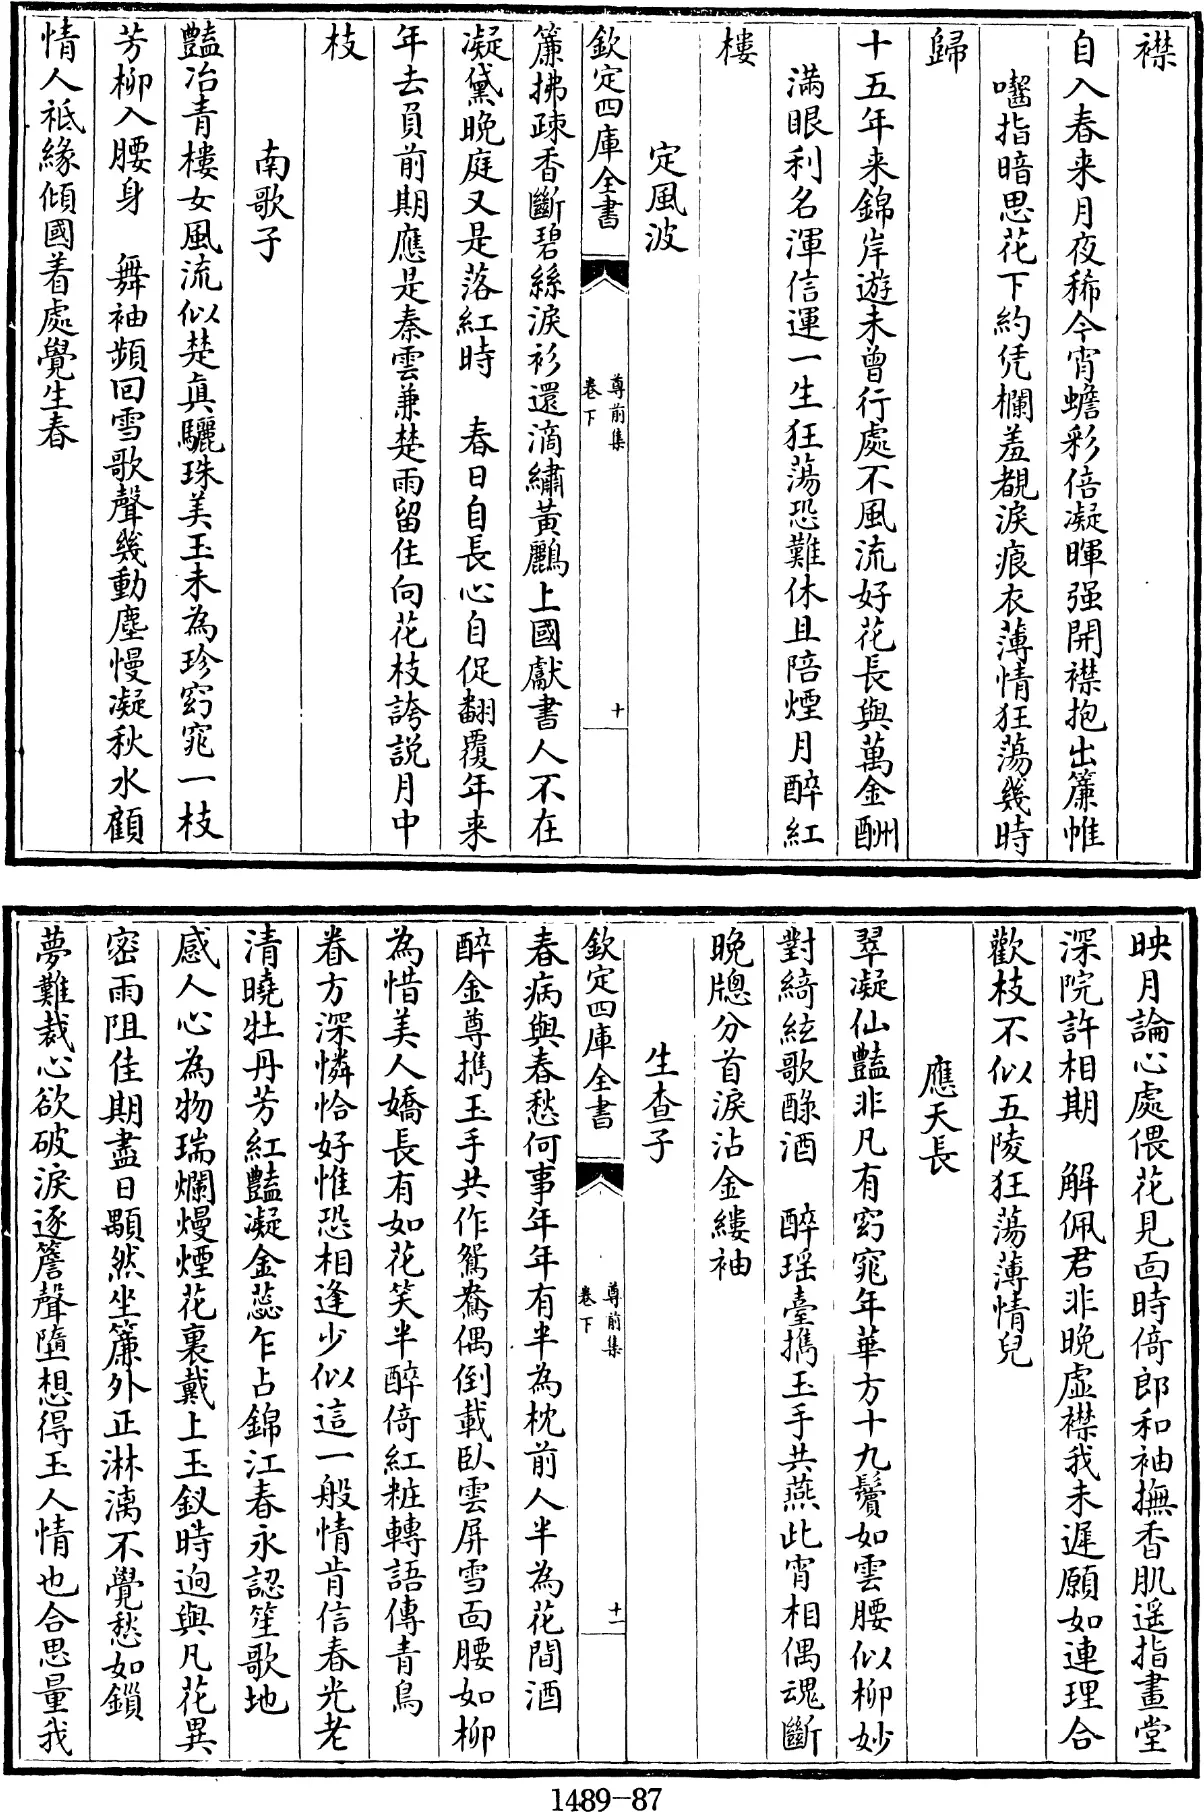 襟
自入春来月夜稀今宵蟾彩倍凝暉强開襟抱出簾帷
囓指暗思花下約凭欄羞覩淚痕衣薄情狂蕩幾時
歸
十五年来錦岸遊未曾行處不風流好花長與萬金酬
滿眼利名渾信運一生狂蕩恐難休且陪煙月醉紅
樓
定風波
欽定四庫全書
尊前集
卷下
十
簾拂疎香斷碧絲淚衫還滴繡黃鸝上國獻書人不在
凝黛晚庭又是落紅時　春日自長心自促翻覆年来
年去負前期應是秦雲兼楚雨留住向花枝誇説月中
枝
南歌子
豔冶青樓女風流似楚真驪珠美玉未為珍窈窕一枝
芳柳入腰身　舞袖頻回雪歌聲幾動塵慢凝秋水顧
情人祗緣傾國着處覺生春
映月論心處偎花見面時倚郎和袖撫香肌遥指畫堂
深院許相期　解佩君非晚虚襟我未遲願如連理合
歡枝不似五陵狂蕩薄情兒
應天長
翠凝仙豔非凡有窈窕年華方十九鬢如雲腰似柳妙
對綺絃歌醁酒　醉瑶臺攜玉手共燕此宵相偶魂斷
晚牕分首淚沾金縷袖
生查子
欽定四庫全書
尊前集
卷下
十一
春病與春愁何事年年有半為枕前人半為花間酒
醉金尊攜玉手共作鴛鴦偶倒載臥雲屏雪面腰如柳
為惜美人嬌長有如花笑半醉倚紅粧轉語傳青鳥
眷方深憐恰好惟恐相逢少似這一般情肯信春光老
清曉牡丹芳紅豔凝金蕊乍占錦江春永認笙歌地
感人心為物瑞爛熳煙花裏戴上玉釵時迥與凡花異
密雨阻佳期盡日顒然坐簾外正淋漓不覺愁如鎖
夢難裁心欲破淚逐簷聲墮想得玉人情也合思量我
1489-87